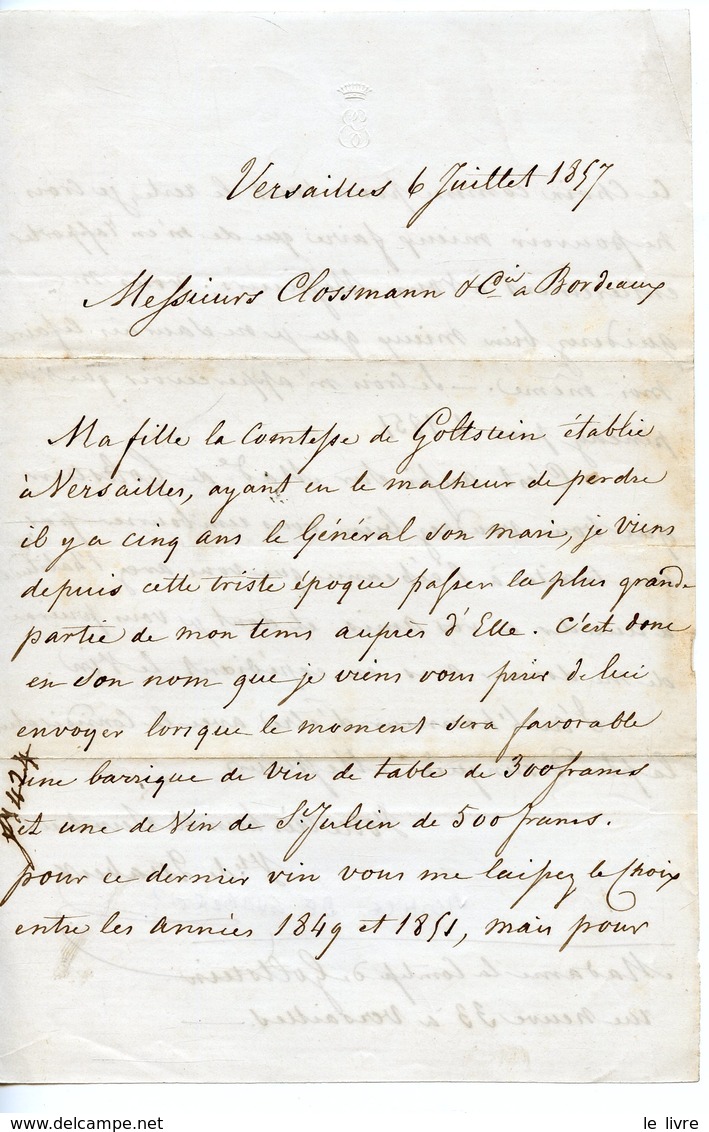 Versailles 6 Juillet 1857
Messieurs Clossmann & Cie a Bordeaux
Ma fille la Comtesse de Goltstein établie
à Versailles, ayant eu le malheur de perdre
il y a cinq ans le Général son mari, je viens
depuis cette triste époque passer la plus grande
partie de mon tems auprès d'Elle. C'est donc
en son nom que je viens vous prier de lui
envoyer lorsque le moment sera favorable
une barrique de vin de table de 300 francs
et une de Vin de St Julien de 500 francs.
pour ce dernier vin vous me laissez le Choix
entre les années 1849 et 1851, mais pour
Madame la Comtesse de Goltstein
rue neuve 33 a Versailles.
www.delcampe.net
le livre